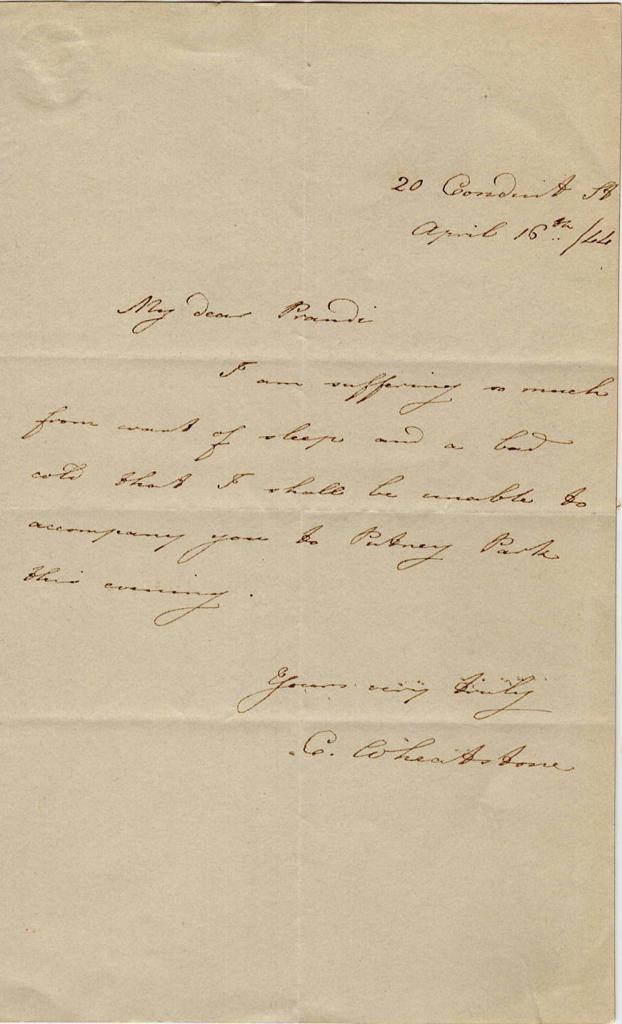 20 Conduit St
April 16th /44
My dear Prandi
I am suffering so much
from want of sleep and a bad
cold that I shall be unable to
accompany you to Putney Park
this evening.
Yours very truly
C. Wheatstone